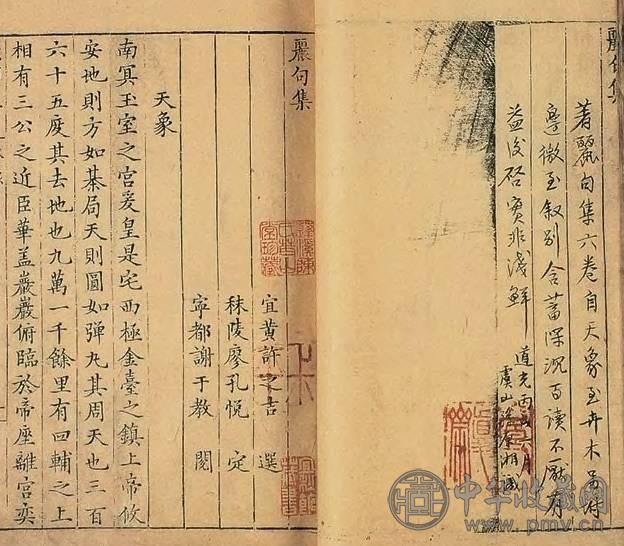 麗句集
著麗句集六卷自天象至卉木另附
邊徼至叙别含蓄深沉百讀不厭有
益後啓實非淺鮮
道光丙戌六月
虞山
麗句集
宜黄許之吉 選
秣陵廖孔悦 定
寧都謝于教 閲
天象
南冥玉室之宮爰皇是宅西極金臺之鎮上帝攸
安地則方如棊局天則圓如弾丸其周天也三百
六十五度其去地也九萬一千餘里有四輔之上
相有三公之近臣華盖巖巖俯臨於帝座離宮奕
中华收藏网
www.pmv.cn